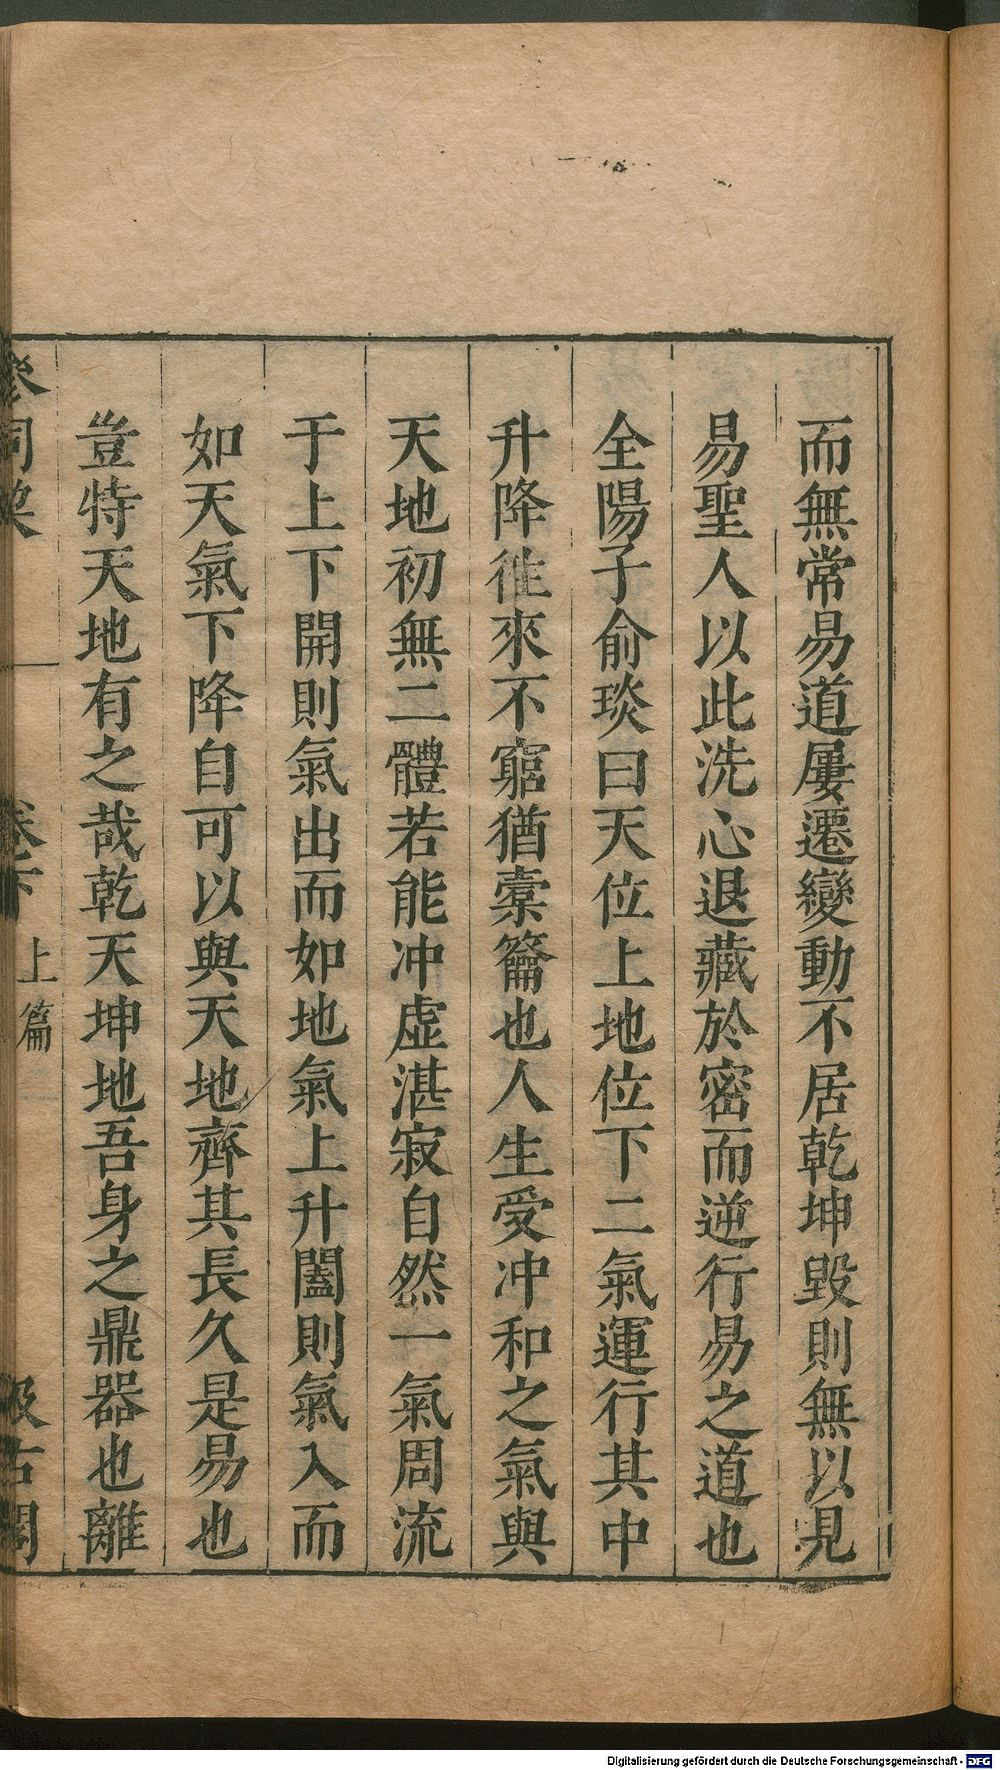 而無常易道屢遷變動不居乾坤毀則無以見
易聖人以此洗心退藏於密而逆行易之道也
全陽子俞琰曰天位上地位下二氣運行其中
升降徃來不窮猶槖籥也人生受冲和之氣與
天地初無二體若能冲虛湛寂自然一氣周流
于上下開則氣出而如地氣上升闔則氣入而
如天氣下降自可以與天地齊其長久是易也
豈特天地有之哉乾天坤地吾身之鼎器也離
參同契 卷下 上篇 汲古閣
Digitalisierung gefördert durch die Deutsche Forschungsgemeinschaft - DFG